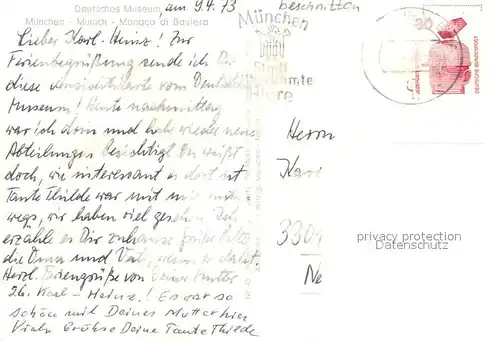 Deutsches Museum, am 9.4.73
München - Munich - Monaco di Baviera
Lieber Karl-Heinz! Zur
Ferienbegrüßung sende ich Dir
diese Ansichtskarte vom Deutschen
Museum! Heute nachmittag
war ich dort und habe wieder neue
Abteilungen besichtigt. Du weißt
doch, wie interessant es dort ist
Tante Thilde war mit mir unter-
wegs, wir haben viel gesehen. Ich
erzähle es Dir zuhause. Grüße bitte
die Oma und Vati, wenn er da ist.
Herzl. Feriengrüße von Deiner Mutter
Lb. Karl-Heinz! Es war so
schön mit Deiner Mutter hier
Viele Grüße Deine Tante Thilde
beschritten
München
Stadt
Herrn
Karl
330
Ne
80
DEUTSCHE BUNDESPOST
privacy protection
Datenschutz